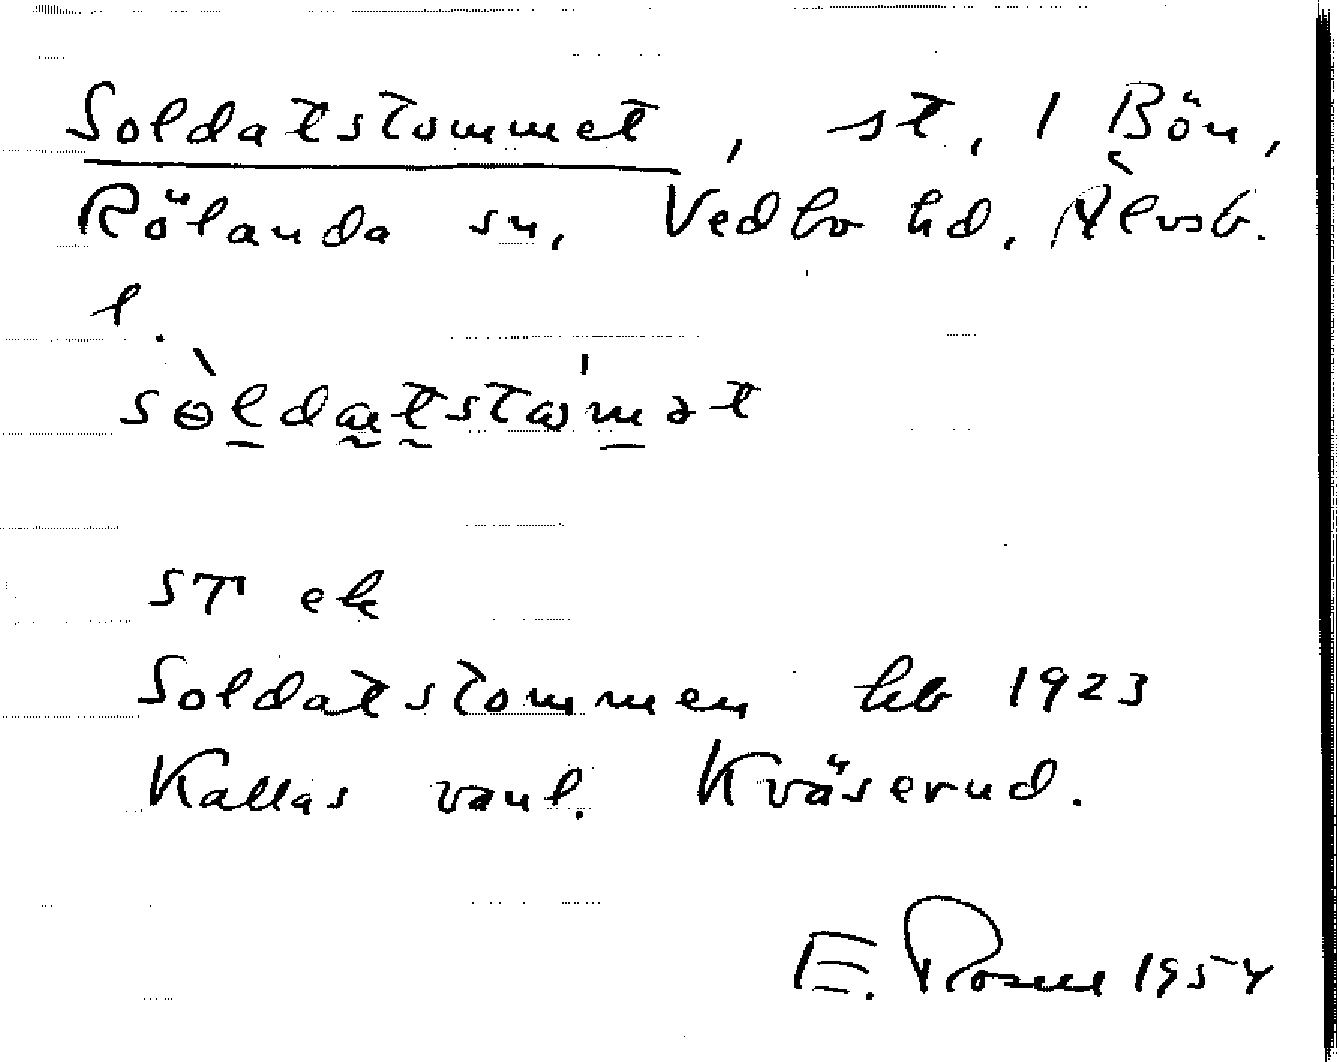 Soldatstommet, st, 1 Bön,
Rölanda sn, Vedbo hd, Älvsb.
l.
sɵ̀ldatstωmət
ST ek
Soldatstommen hb 1923
Kallas vanl. Kväserud.
E. Rosell 1954